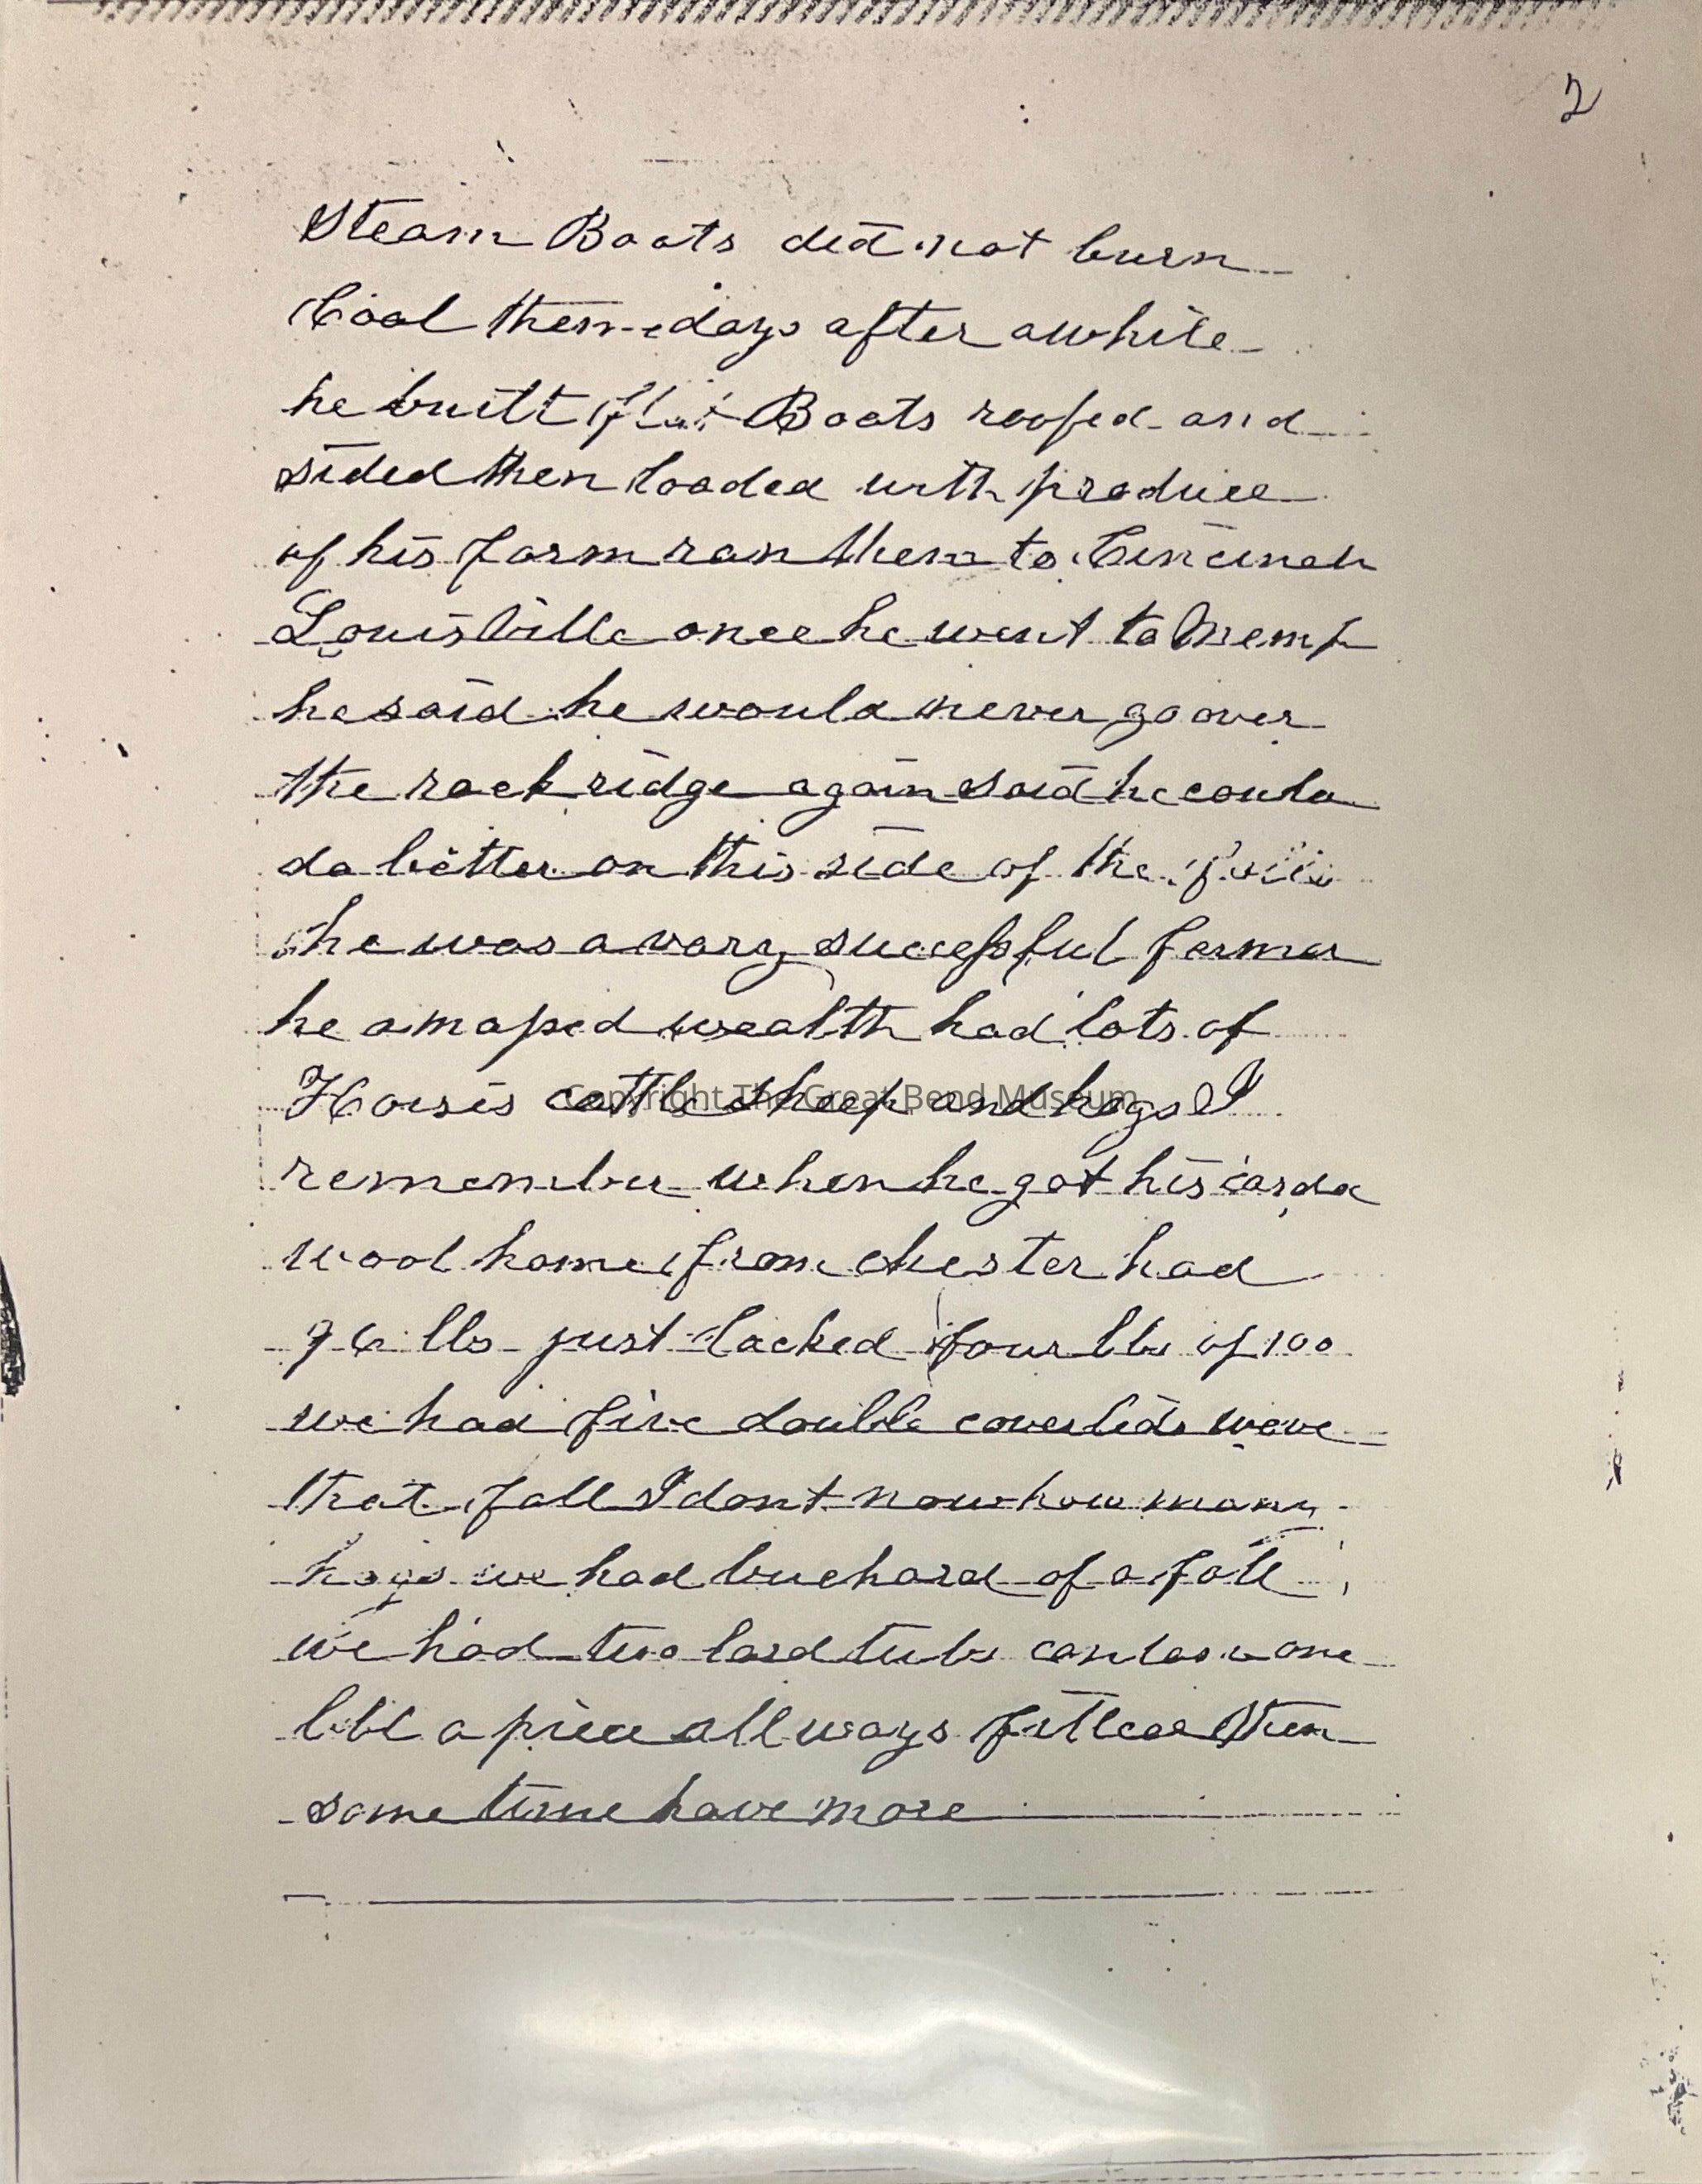 2
Steam Boats did not burn
Coal them days after awhile
he built flat Boats roofed and
sided then loaded with produce
of his farm ran them to Cincinah
Louisville once he went to Memp
he said he would never go over
the rock ridge again said he could
do better on this side of the falls
he was a vary successful farmer
he amassed wealth had lots of
Horsis cattle sheep and hogs I
Copyright The Great Bend Museum
remember when he got his carda
wool home from chester had
96 lbs just lacked four lbs of 100
we had five double coverlids wove
that fall I dont now how many
hogs we had buchard of a fall
we had two lard tubs one
bbl a piece all ways filled them
some time have more